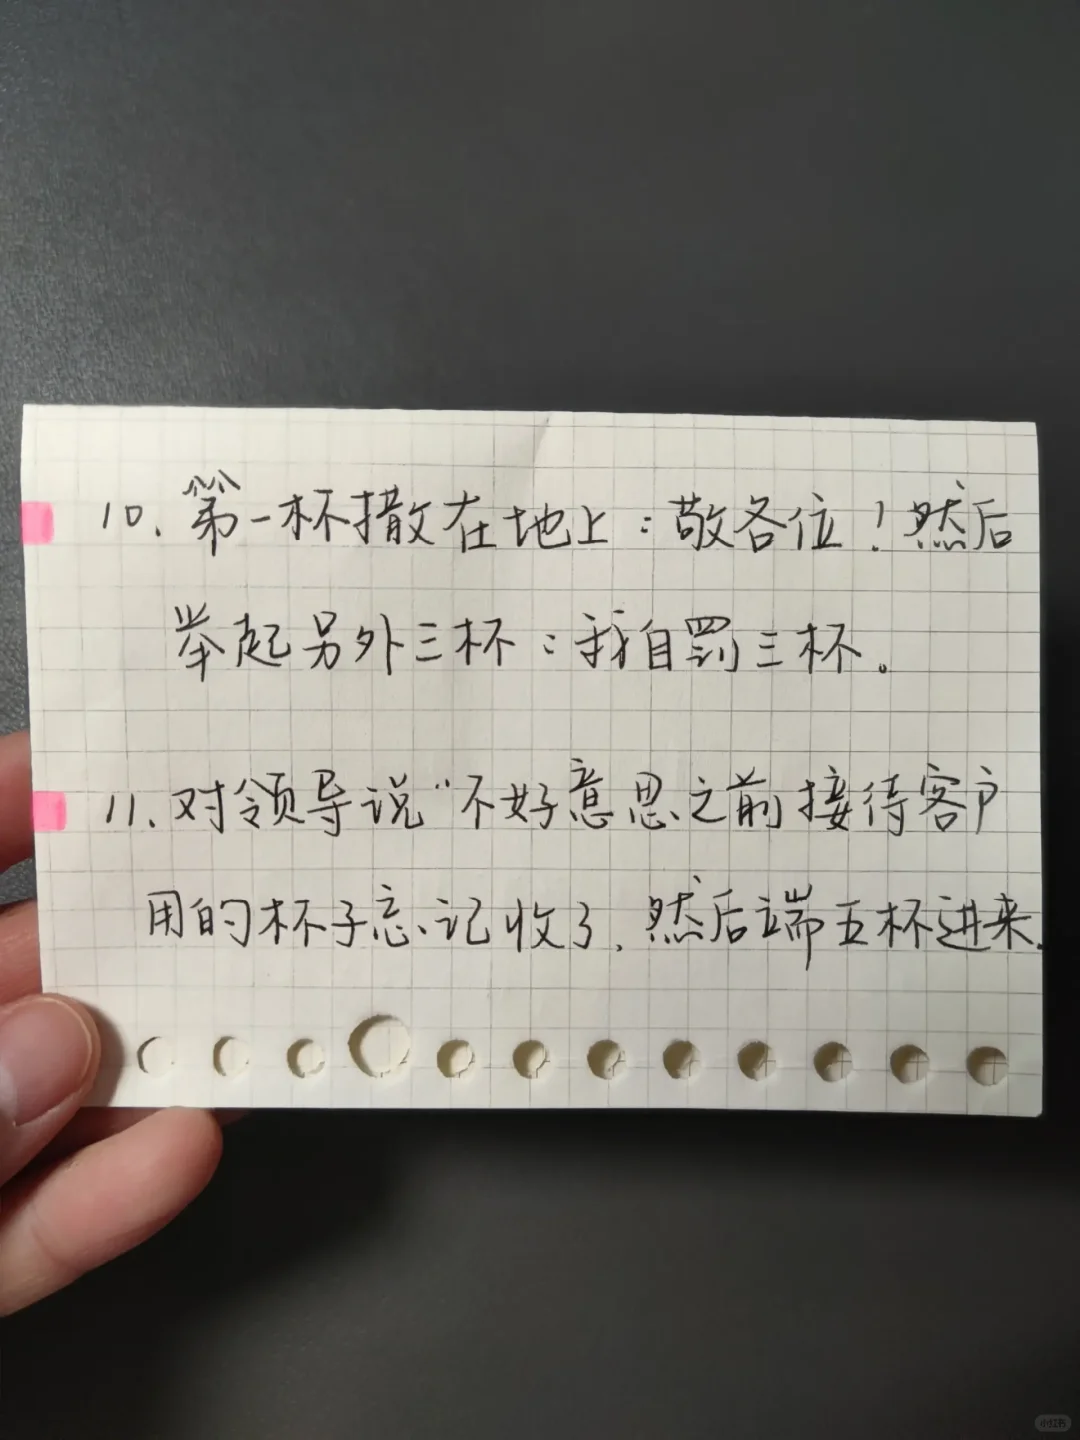 10. 第一杯撒在地上：敬各位！然后
举起另外三杯：我自罚三杯。
11. 对领导说“不好意思之前接待客户
用的杯子忘记收了，然后端五杯进来.
小红书